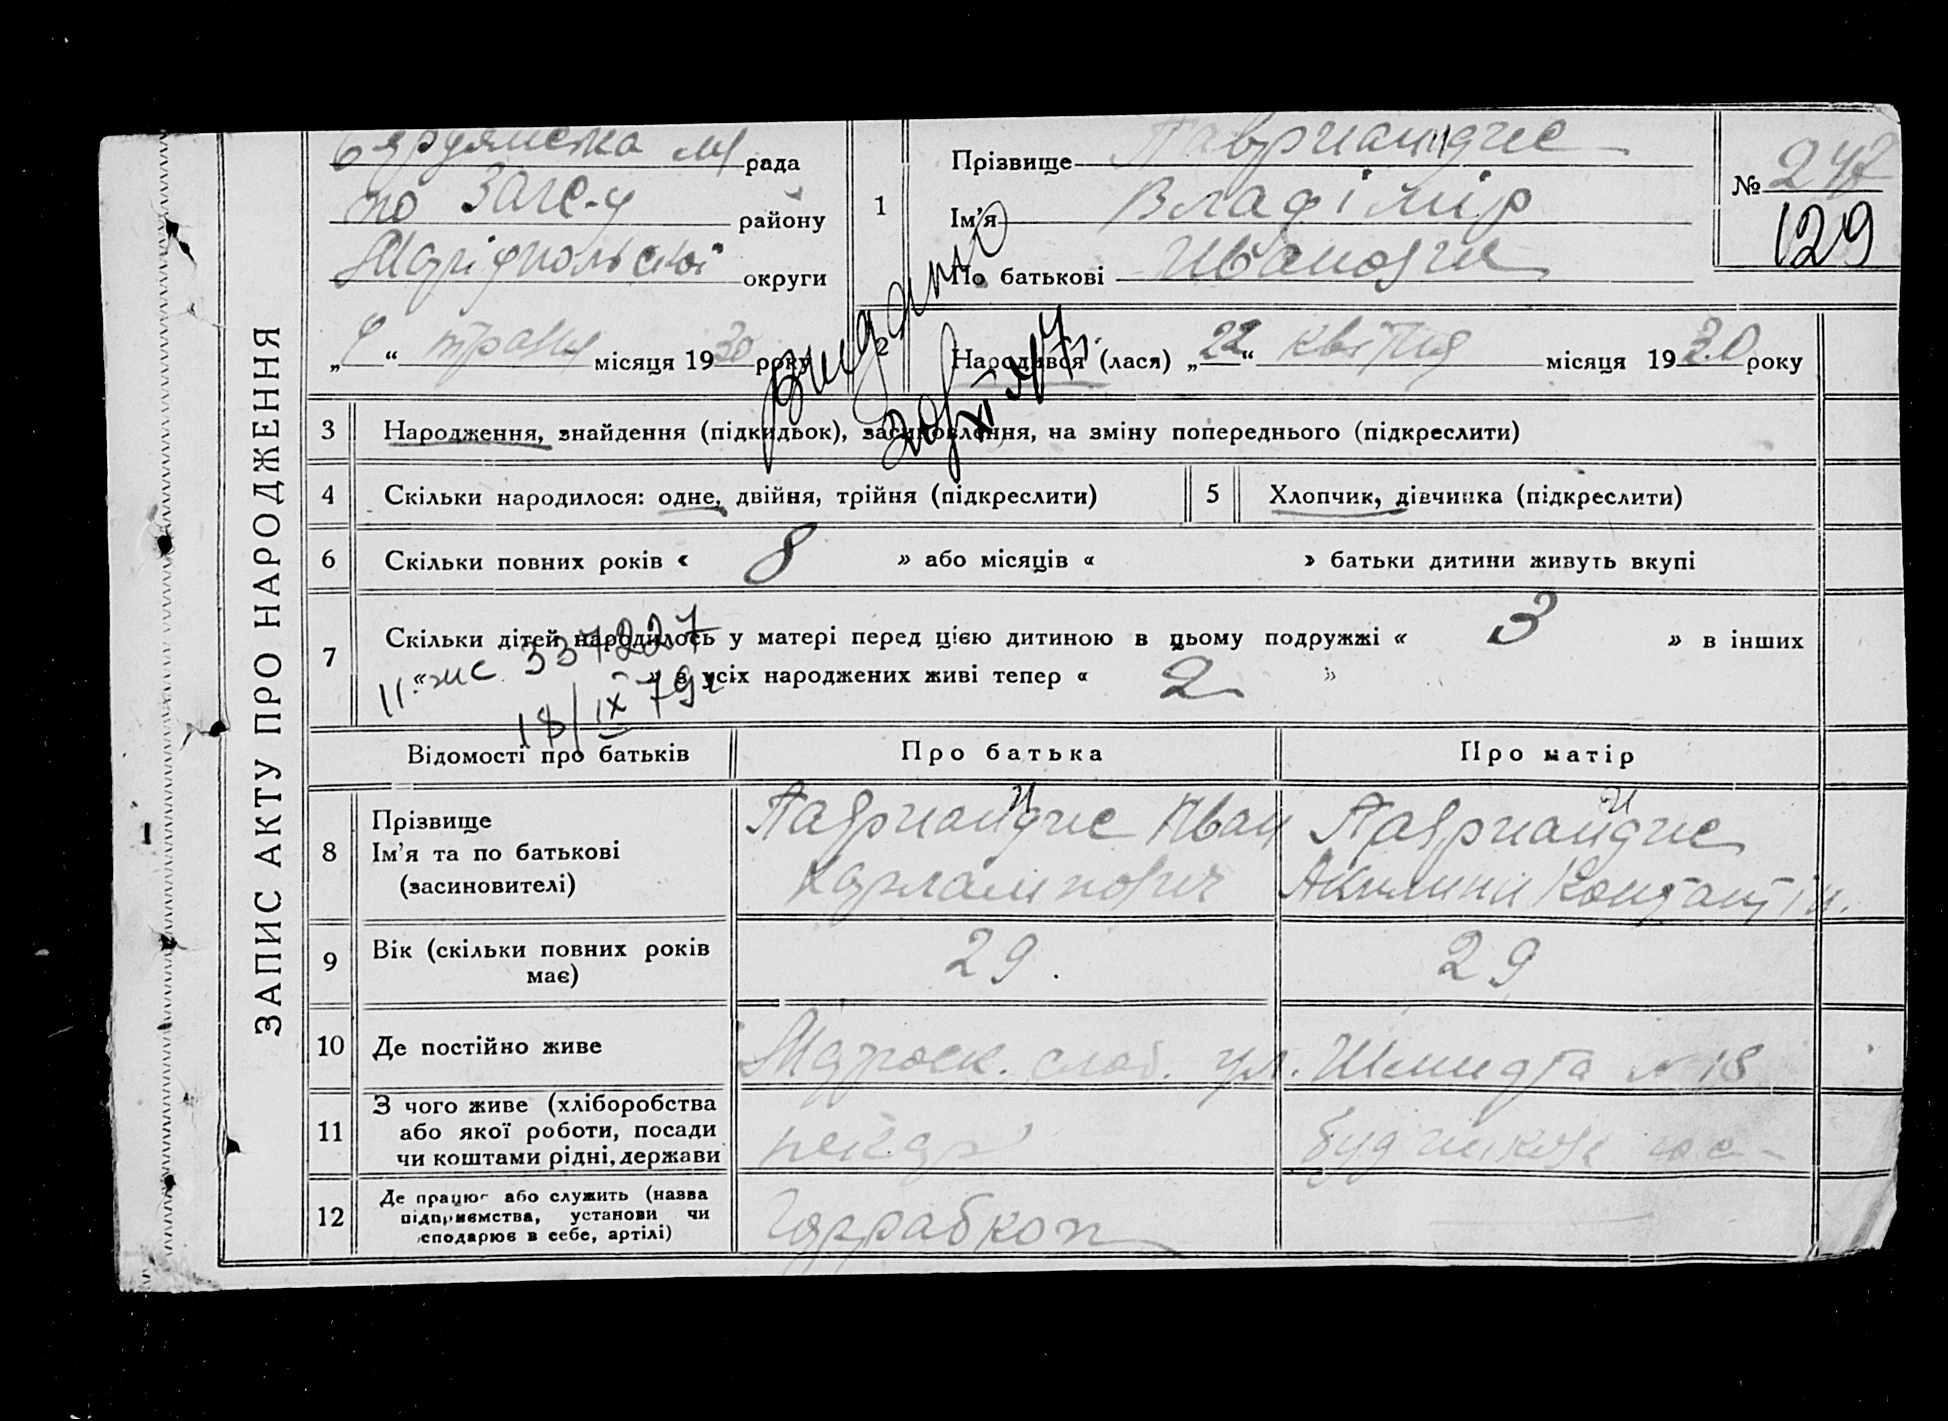 Бердянська м
рада
по Загс-у району
Маріупольської округи
„ “ травня місяця 1930 року
1
Прізвище
Ім'я Владімір
По батькові Иванович
№ 247
129
2
Народився (лася) „22“ квітня місяця 1930 року
Видано
3 Народження, знайдення (підкидьок), засиновлення, на зміну попереднього (підкреслити)
4 Скільки народилося: одне, двійня, трійня (підкреслити)
5 Хлопчик, дівчинка (підкреслити)
6 Скільки повних років « 8 » або місяців « » батьки дитини живуть вкупі
7 Скільки дітей народилось у матері перед цією дитиною в цьому подружжі « 3 » в інших
« » в усіх народжених живі тепер « 2 »
II-жс 337227
18/IX 79г
Відомості про батьків
Про батька
Про матір
8 Прізвище
Ім'я та по батькові
(засиновителі)
Иван
Харлампович
Константін.
9 Вік (скільки повних років має)
29.
29
10 Де постійно живе
Матроск. слоб. ул. Шмидта № 18
11 З чого живе (хліборобства
або якої роботи, посади
чи коштами рідні, держави
12 Де працює або служить (назва
підприємства, установи чи
сподарює в себе, артілі)
Церрабкоп
ЗАПИС АКТУ ПРО НАРОДЖЕННЯ